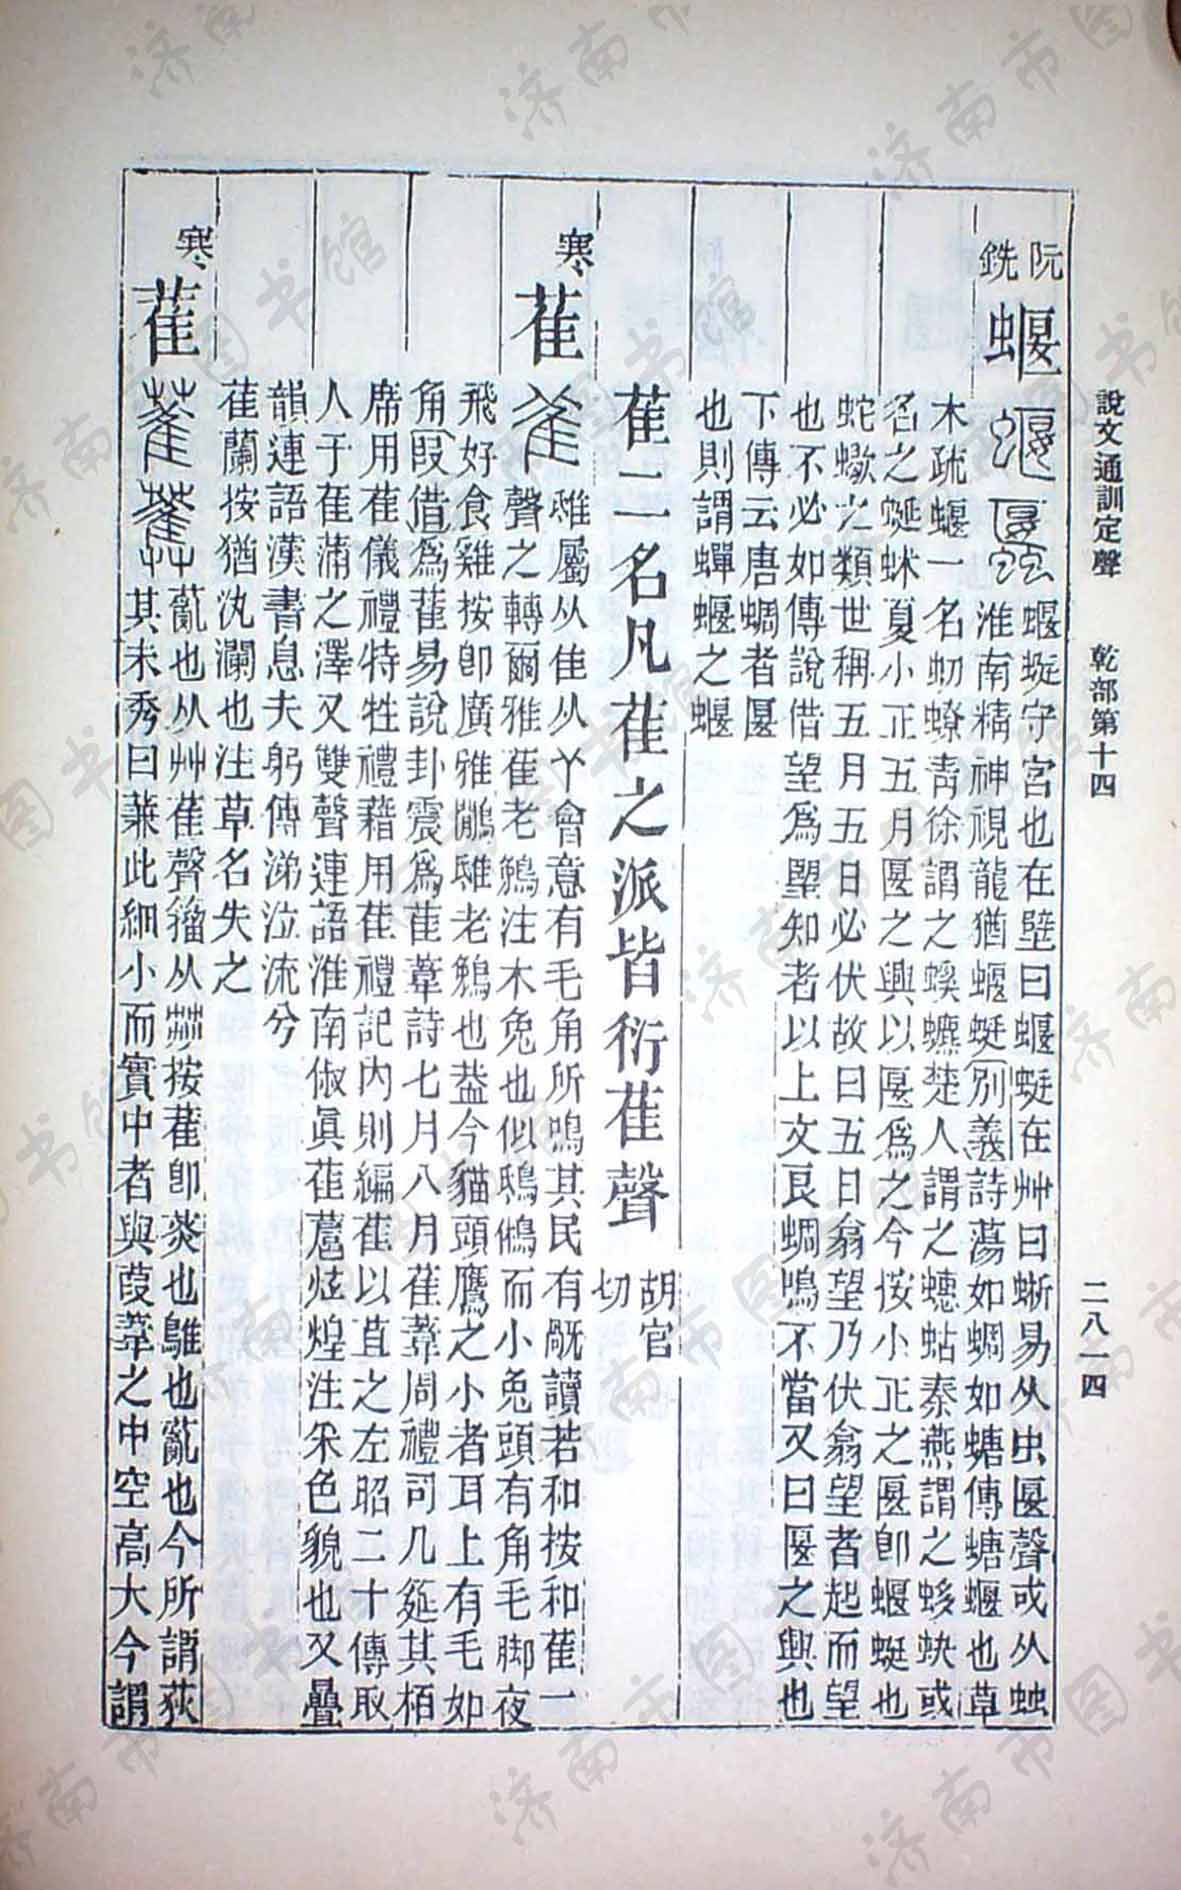 說文通訓定聲　乾部第十四　二八一四
阮銑
蝘
蝘蜓守宮也在壁曰蝘蜓在艸曰蜥易从虫匽聲或从䖵
淮南精神視龍猶蝘蜓別義詩蕩如蜩如螗傳螗蝘也草
木疏蝘一名虭蟟青徐謂之螇螰楚人謂之蟪蛄秦燕謂之蛥蚗或
名之蜓蚞夏小正五月匽之興以匽爲之今按小正之匽卽蝘蜓也
蛇蠍之類世稱五月五日必伏故曰五日翕望乃伏翕望者起而望
也不必如傳說借望爲朢知者以上文良蜩鳴不當又曰匽之興也
下傳云唐蜩者匽
也則謂蟬蝘之蝘
萑一名凡萑之派皆衍萑聲
胡官切
寒
萑
鴟屬从隹从丫會意有毛角所鳴其民有旤讀若和按和萑一
聲之轉爾雅萑老鵵注木兔也似鴟鵂而小兔頭有角毛脚夜
飛好食雞按卽廣雅鶌鴟老鵵也葢今貓頭鷹之小者耳上有毛如
角叚借爲雚易說卦震爲萑葦詩七月八月萑葦周禮司几筵其柏
席用萑儀禮特牲禮藉用萑禮記內則編萑以苴之左昭二十傳取
人于萑蒲之澤又雙聲連語淮南俶眞萑蔰炫煌注釆色貌也又疊
韻連語漢書息夫躬傳涕泣流兮
萑蘭按猶汍瀾也注草名失之
寒
萑
薍也从艸萑聲籀从茻按雚卽菼也鵻也薍也今所謂荻
其未秀曰蒹此細小而實中者與葭葦之中空高大今謂